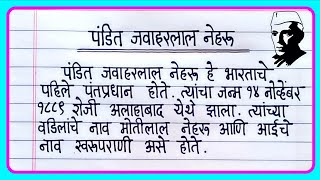 पंडित जवाहरलाल नेहरू
पंडित जवाहरलाल नेहरू हे भारताचे
पहिले पंतप्रधान होते. त्यांचा जन्म १४ नोव्हेंबर
१८८९ रोजी अलाहाबाद येथे झाला. त्यांच्या
वडिलांचे नाव मोतीलाल नेहरू आणि आईचे
नाव स्वरूपराणी असे होते.